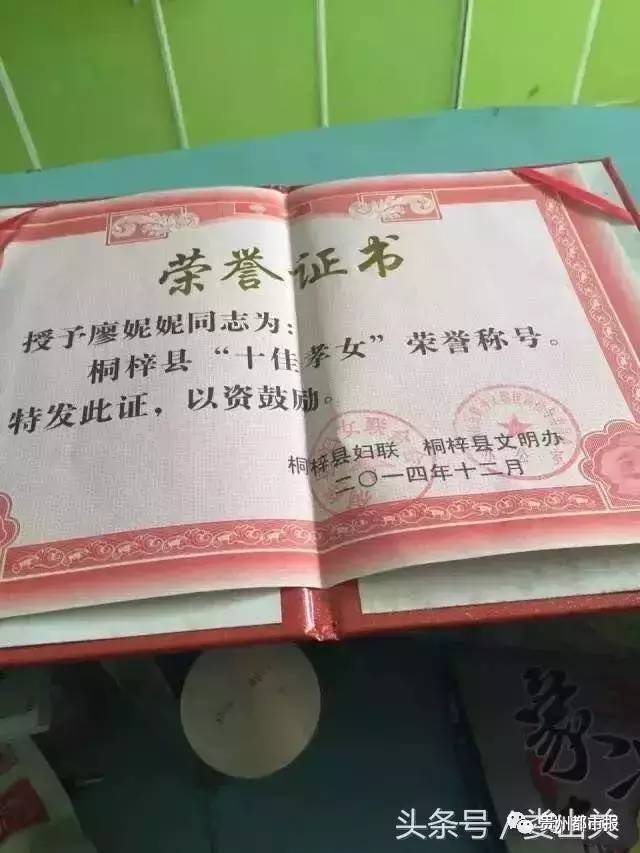 荣誉证书
授予廖妮妮同志为：
桐梓县“十佳孝女”荣誉称号。
特发此证，以资鼓励。
桐梓县妇联 桐梓县文明办
二〇一四年十二月
头条号 / 娄山关
贵州都市报